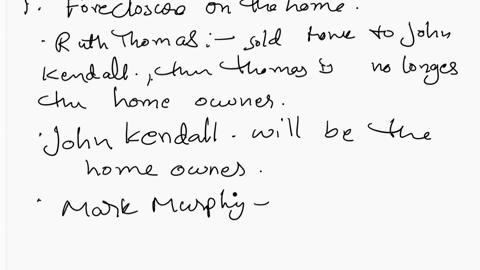 1. Foreclosed on the home.
· Ruth Thomas:- sold home to John
Kendall., then Thomas is no longer
the home owner.
· John Kendall. will be the
home owner.
· Mark Murphy -